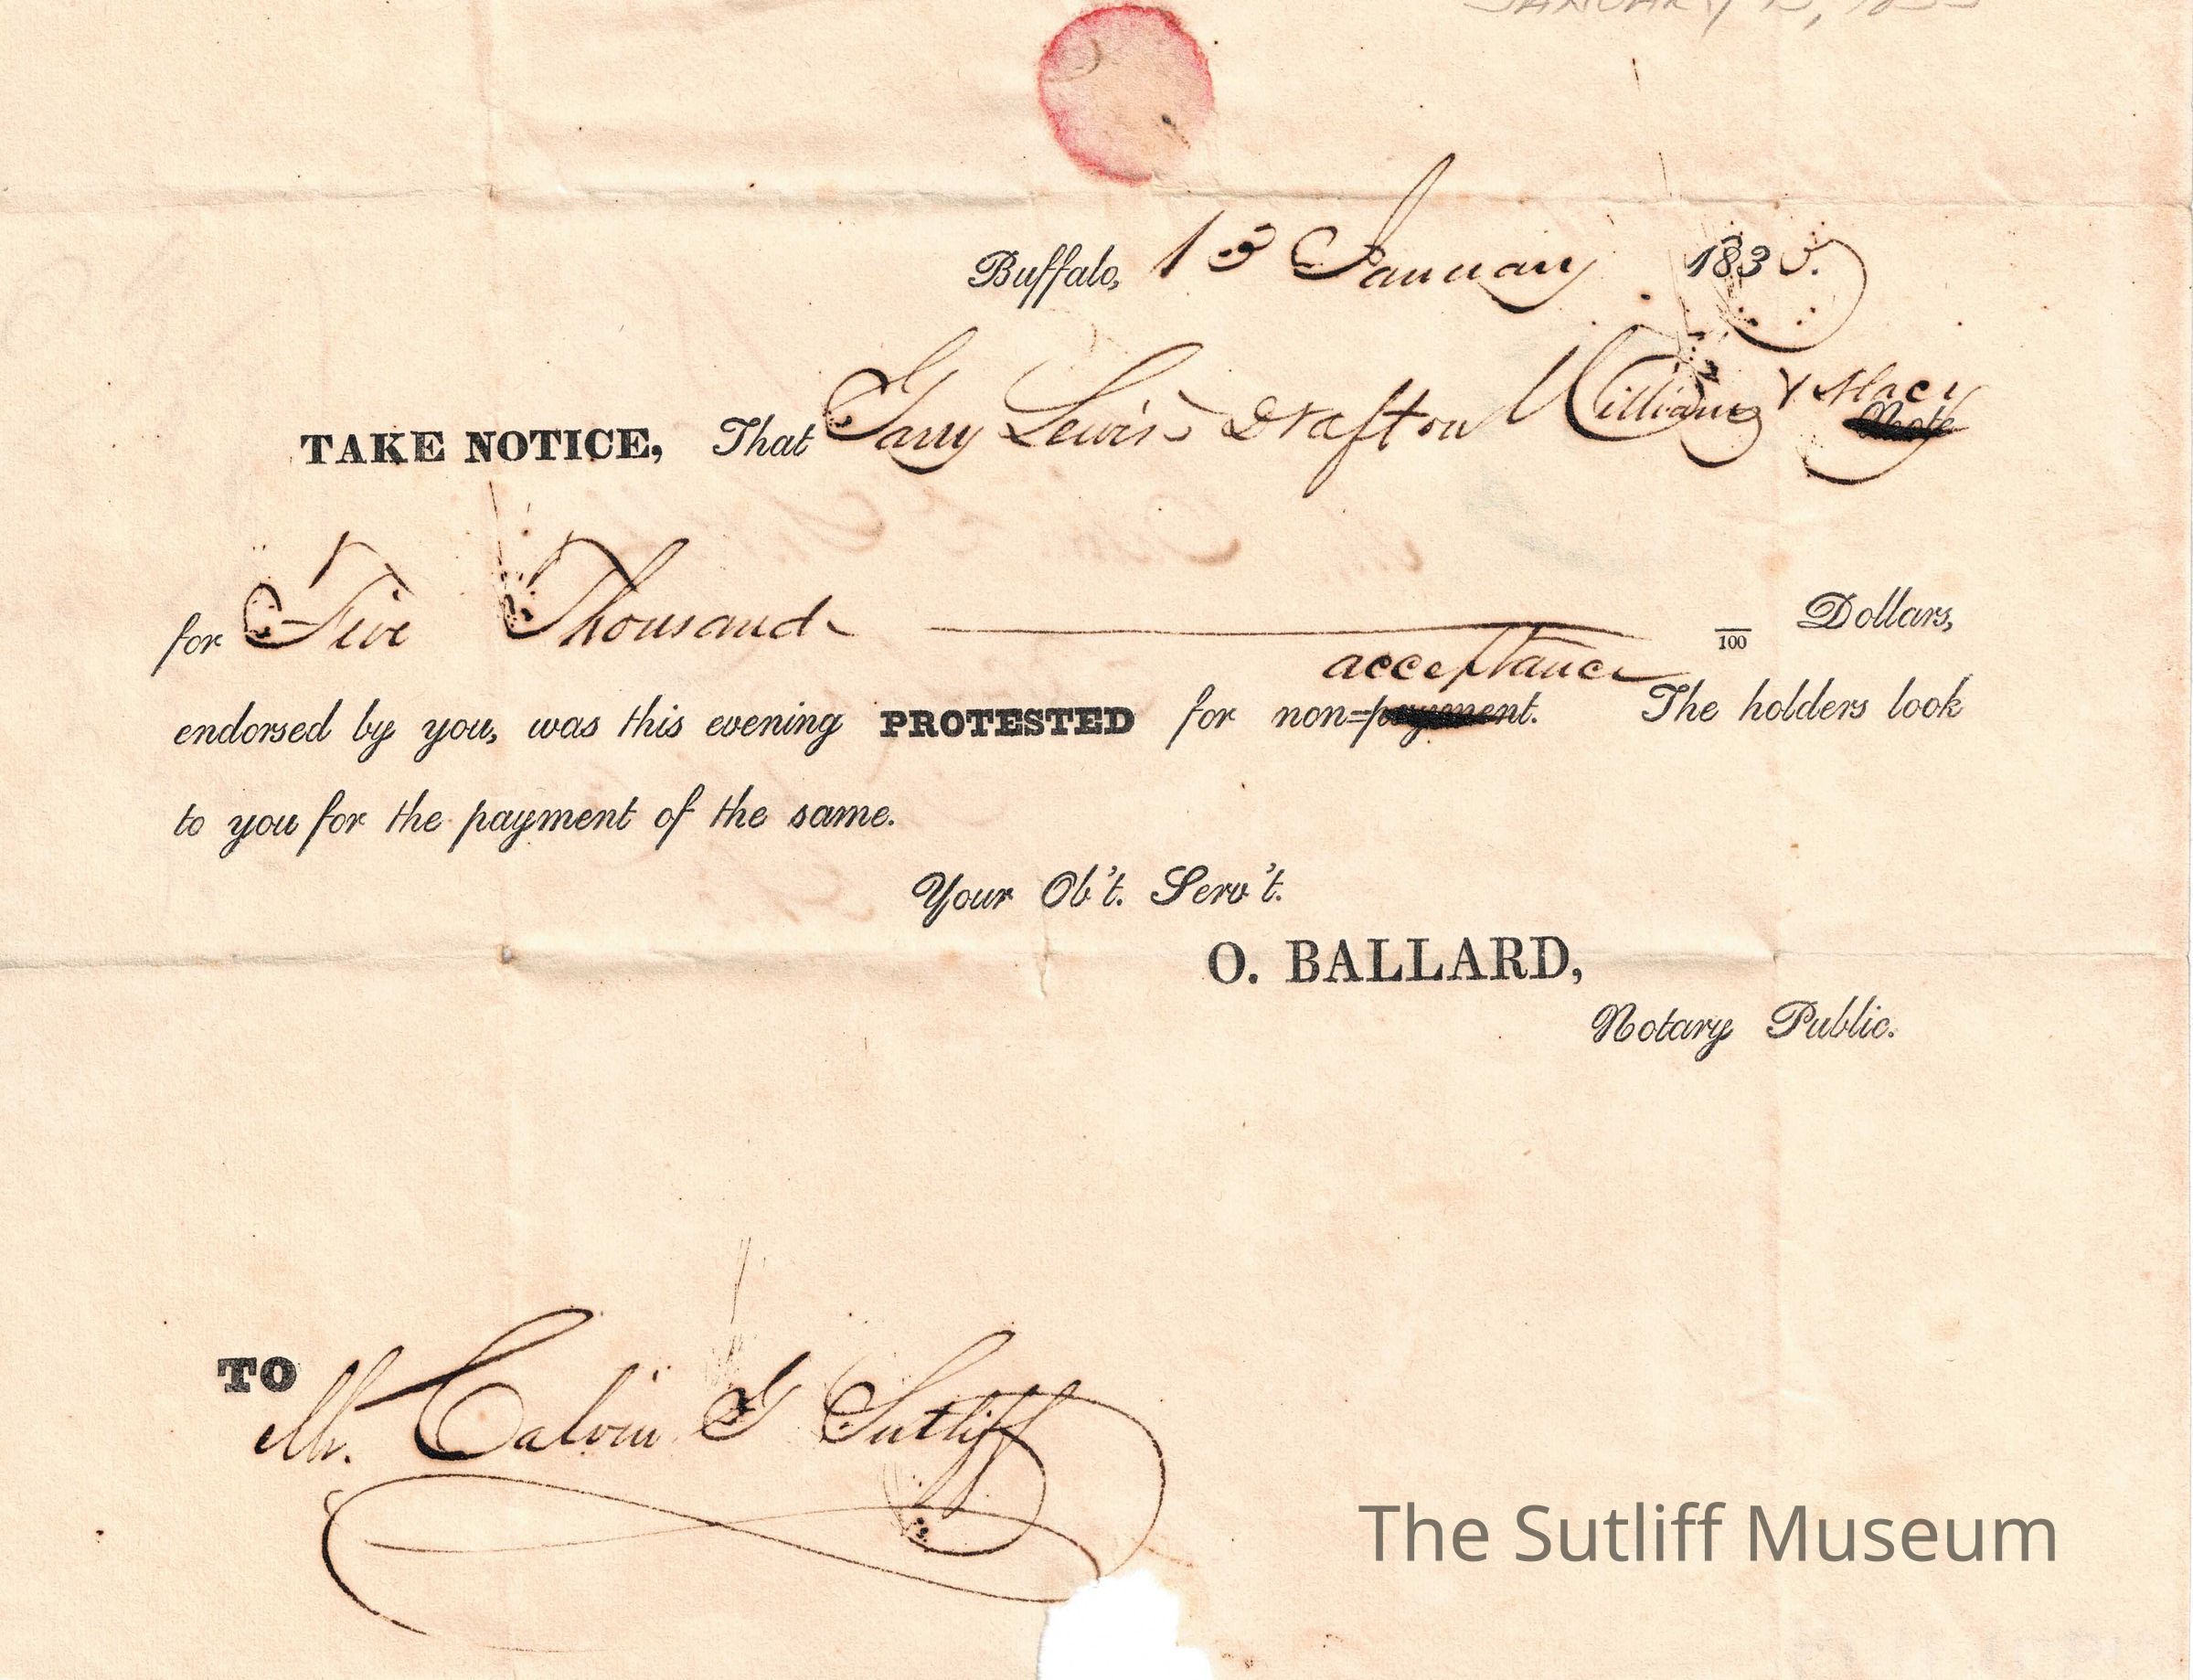 JANUARY 13, 1835
Buffalo, 13 January 1835.
TAKE NOTICE, That Garry Lewis Draft on Williams & Macy
Note
for Five Thousand — /100 Dollars,
acceptance
endorsed by you, was this evening PROTESTED for non=payment. The holders look
to you for the payment of the same.
Your Ob't. Serv't.
O. BALLARD,
Notary Public.
TO
Mr. Calvin G Sutliff
The Sutliff Museum